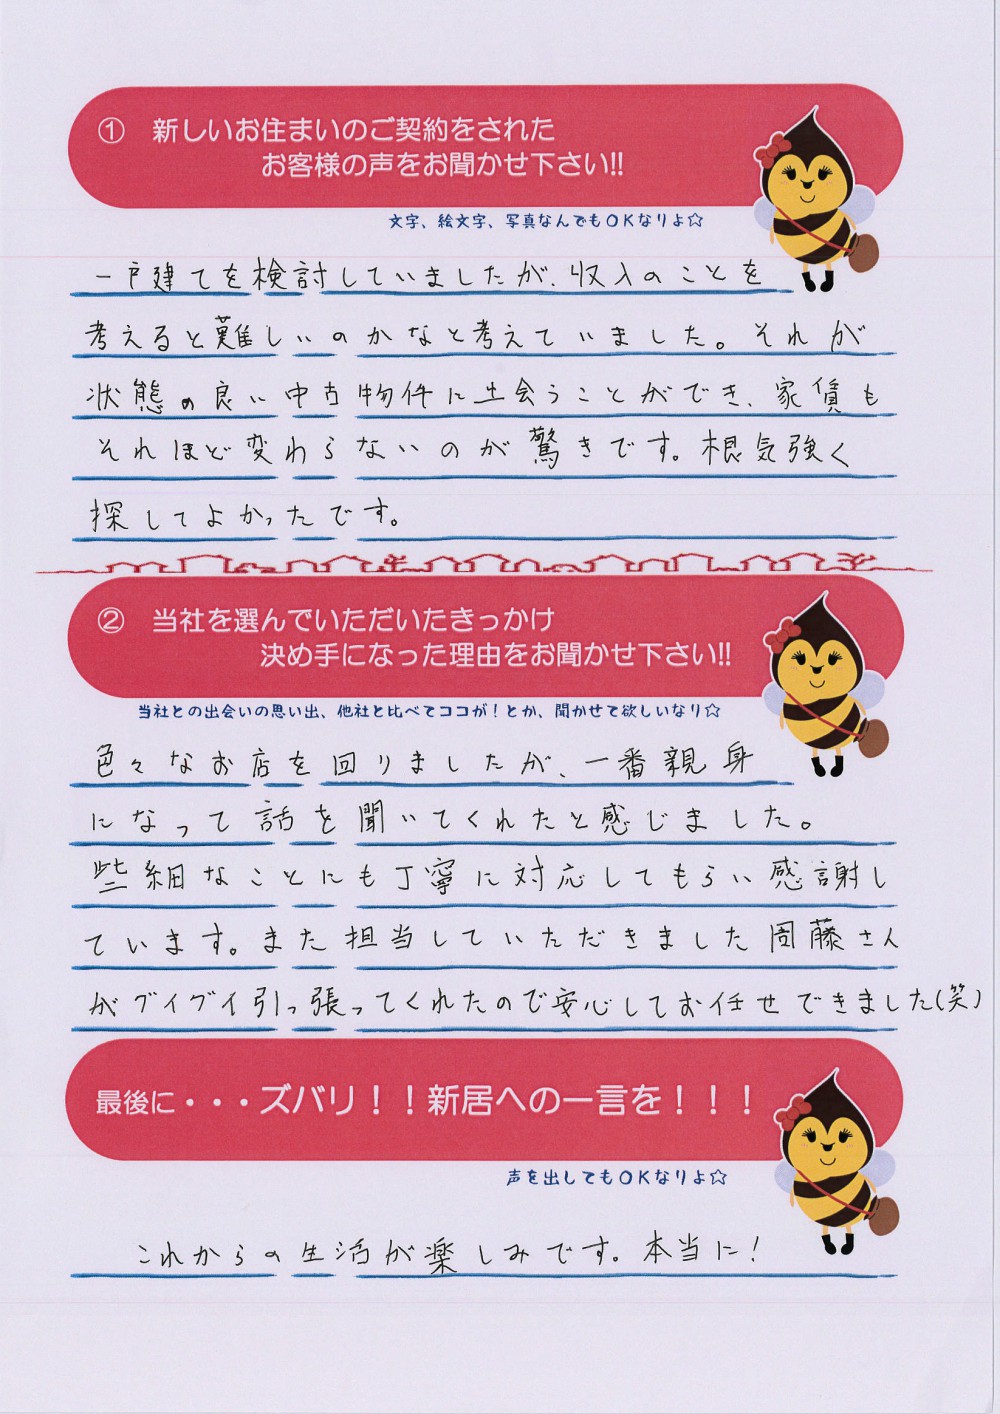 ① 新しいお住まいのご契約をされた
お客様の声をお聞かせ下さい!!
文字、絵文字、写真なんでもOKなりよ☆
一戸建てを検討していましたが、収入のことを
考えると難しいのかなと考えていました。それが
状態の良い中古物件に出会うことができ、家賃も
それほど変わらないのが驚きです。根気強く
探してよかったです。
② 当社を選んでいただいたきっかけ
決め手になった理由をお聞かせ下さい!!
当社との出会いの思い出、他社と比べてココが！とか、聞かせて欲しいなり☆
色々なお店を回りましたが、一番親身
になって話を聞いてくれたと感じました。
些細なことにも丁寧に対応してもらい感謝し
ています。また担当していただきました周藤さん
がグイグイ引っ張ってくれたので安心してお任せできました(笑)
最後に・・・ズバリ！！新居への一言を！！！
声を出してもOKなりよ☆
これからの生活が楽しみです。本当に！